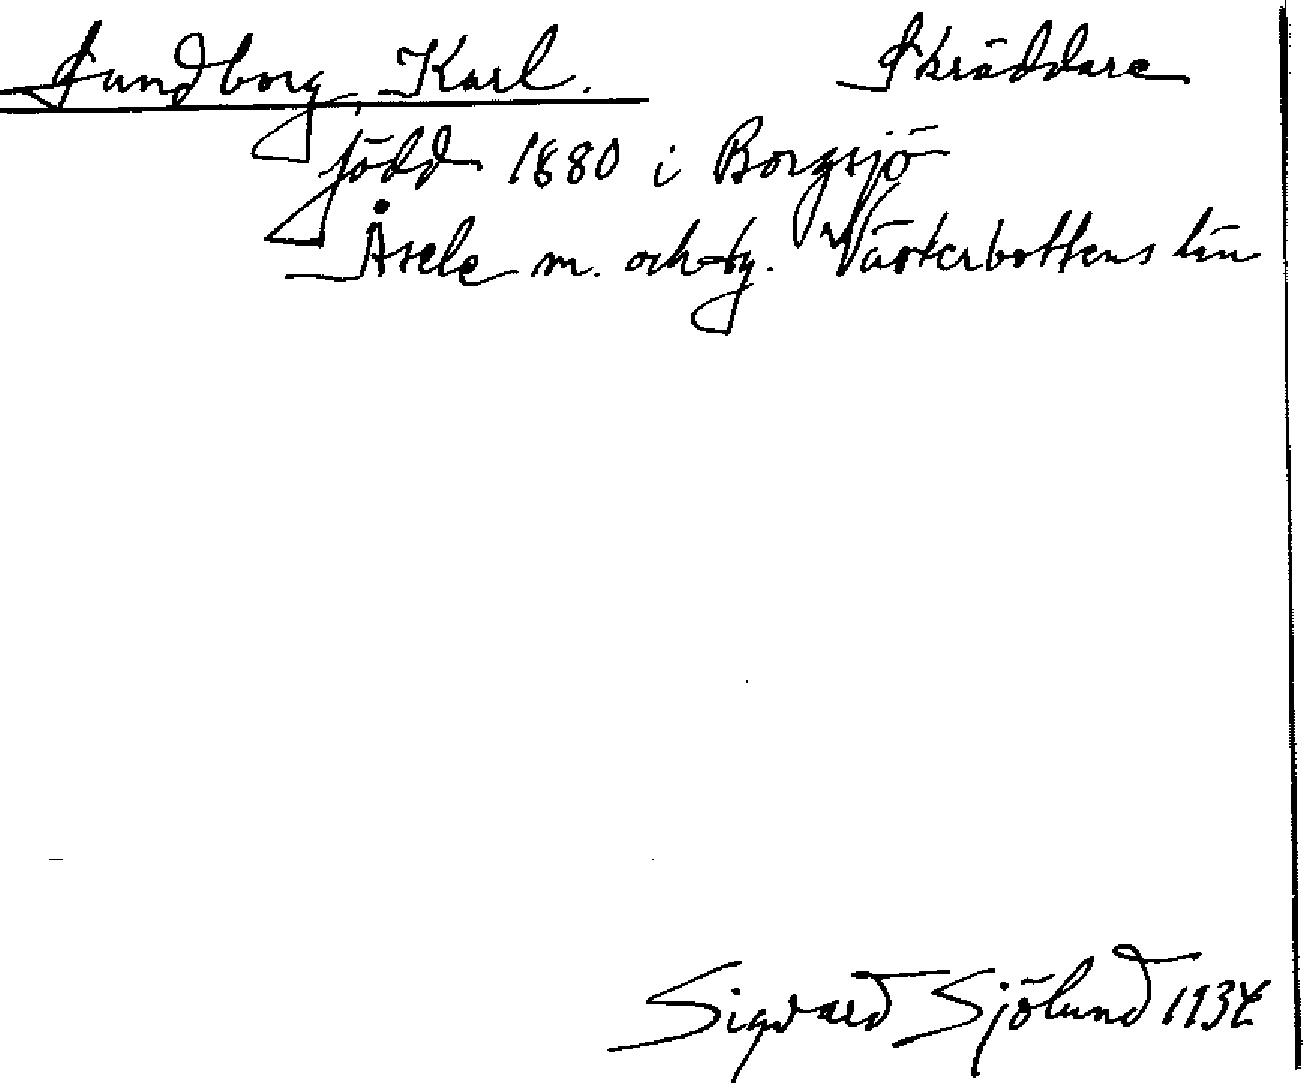 Sundborg, Karl. Skräddare
född 1880 i Borgsjö
Åsele sn. och tg. Västerbottens län
Sigvard Sjölund 1934